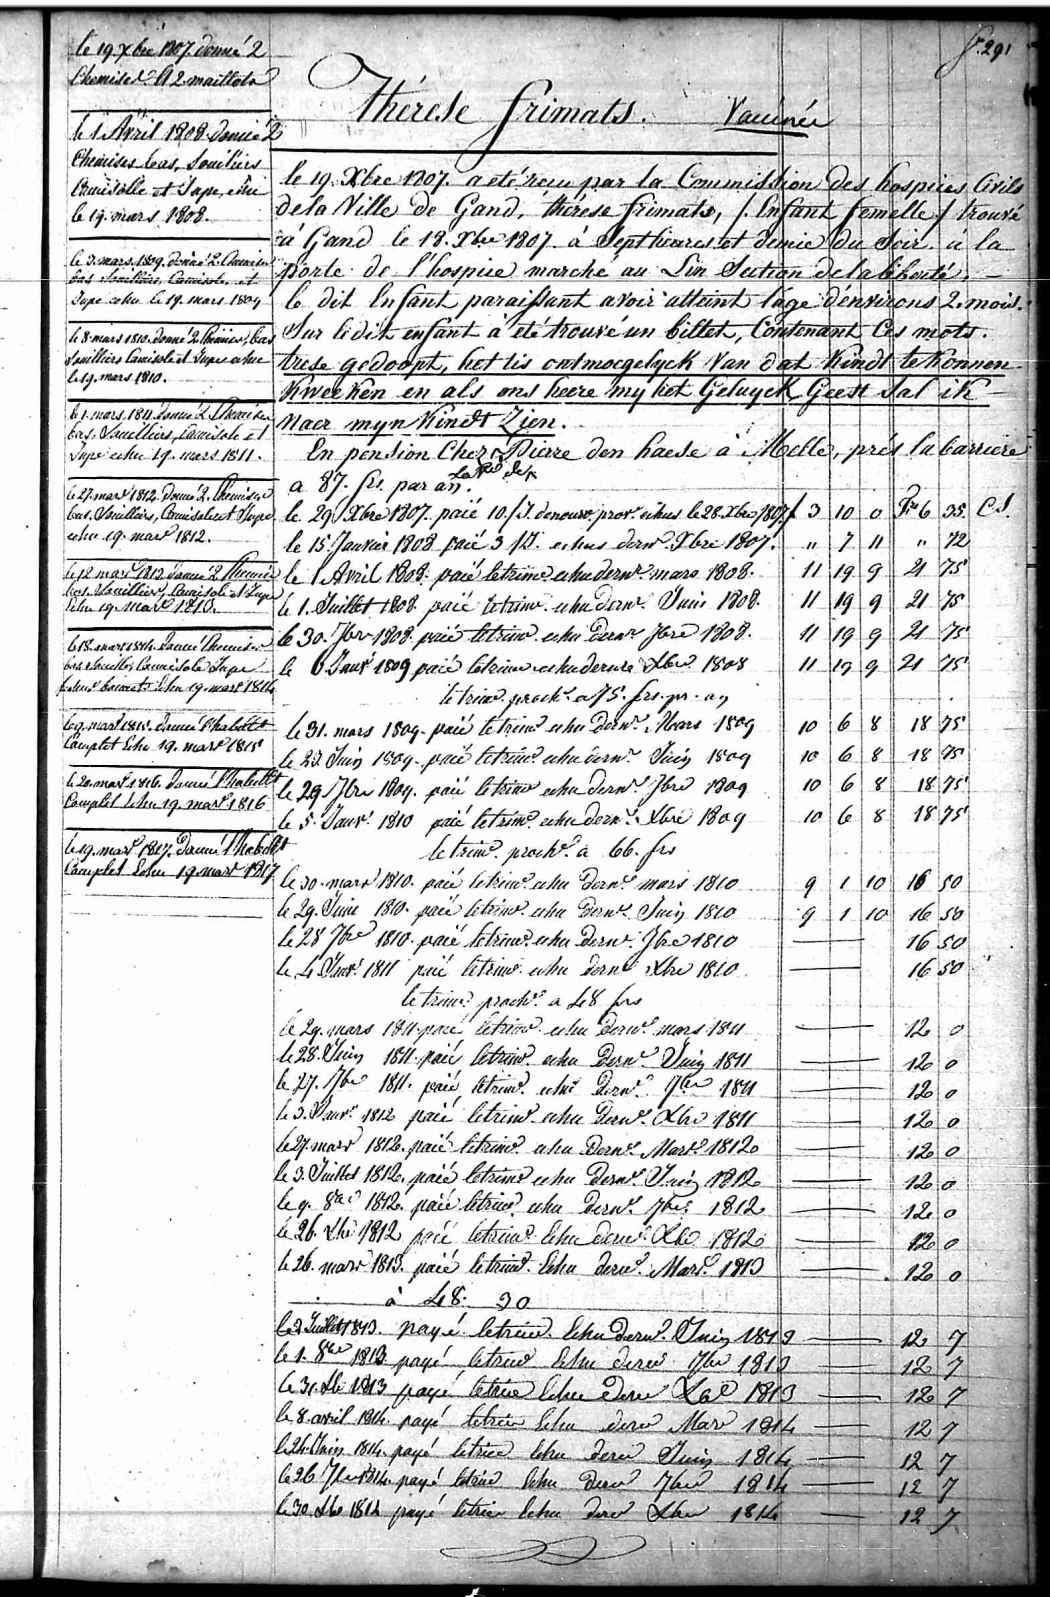 f. 291
le 19 Xbre 1807. donné 2
Chemises et 2 maillots
le 1 Avril 1808 donné 2
Chemises bas, Souliers
Camisolle et Jupe, échu
le 19. mars 1808.
le 3. mars. 1809. donné 2 Chemises
bas Souilliers, Camisole, et
Jupe echu le 19. mars 1809
le 8 mars 1810. donné 2 Chemises, bas
Souilliers Camisole et Jupe echue
le 19. mars 1810.
le 1. mars. 1811. donné 2 Chemises
bas, Souilliers, Camisole et
Jupe echu 19. mars 1811.
le 27. mars 1812. donné 2. Chemises
bas. Souilliers, Camisole et Jupe
echu 19. mars 1812.
le 12 mars 1813. donné 2 Chemises
bas. Souilliers, Camisole et Jupe
Echu 19. mars 1813.
le 18. mars 1814. donné Chemises
bas Souilliers Camisole Jupe
Echu 19. mars 1814
le 9. mars 1815. donné l'habillt
Complet Echu 19. mars 1815
le 20. mars 1816. donné l'habillt
Complet Echu 19. mars 1816
le 19. mars 1817. donné l'habillt
Complet Echu 19. mars 1817
Thérese frimats. Vaccinée
le 19. Xbre 1807. a eté reçu par la Commission des hospices Civils
de la Ville de Gand, thérese frimats, /. Enfant femelle / trouvé
à Gand le 18. Xbre 1807. à Sept heures et demie du Soir. à la
porte de l'hospice marché au Lin Section de la liberté, —
le dit Enfant paraissant avoir atteint l'age d'environs 2. mois.
Sur le dit enfant à eté trouvé un billet, Contenant Ces mots.
trese gedoopt, het tis ontmoegelyck van dat Kindt te Konnen
Kweeken en als ons heere my het Geluyck Geeft Sal ik
naer myn Kindt Zien.
En pension Chez Pierre den haese à Melle, prés la barriere
a 87. frs. par an.
le 29. Xbre 1807. paié 10. echus le 28. Xbre 1807. f 3 10 0 Frs 6 35 Cs.
le 15 Janvier 1808 paié 3 echus derne. Xbre 1807. " 7 " " 72
le 1 Avril 1808. paié le trime. echu derne. mars 1808. 11 19 9 21 75
le 1. Juillet 1808. paié le trime. echu derne. Juin 1808. 11 19 9 21 75
le 30. 7bre 1808. paié le trime. echu derne 7bre 1808. 11 19 9 21 75
le 6 Janvr 1809 paié le trime echu derne Xbre 1808 11 19 9 21 75
le trime. proche. a 75. frs. pr. an
le 31. mars 1809. paié le trime echu derne. Mars 1809 10 6 8 18 75
le 23. Juin 1809. paié le trime echu derne. Juin 1809 10 6 8 18 75
le 29 7bre 1809. paié le trime echu derne. 7bre 1809 10 6 8 18 75
le 5. Janvr. 1810 paié le trime. echu derne. Xbre 1809 10 6 8 18 75
le trime. proche. a 66. frs
le 30. mars 1810. paié le trime. echu derne. mars 1810 9 1 10 16 50
le 29. Juin 1810. paié le trime. echu derne. Juin 1810 9 1 10 16 50
le 28 7bre 1810. paié le trime. echu derne. 7bre 1810 — 16 50
le 4 Janvr. 1811 paié le trime. echu derne Xbre 1810 — 16 50
le trime. proche. a 48 frs
le 29. mars 1811. paié le trime. echu derne. mars 1811 — 12 0
le 28. Juin 1811. paié le trime. echu derne. Juin 1811 — 12 0
le 27. 7bre 1811. paié le trime. echu derne. 7bre 1811 — 12 0
le 3. Janvr. 1812 paié le trime. echu derne. Xbre 1811 — 12 0
le 27. mars 1812. paié le trime. echu derne. Mars. 1812 — 12 0
le 3. Juillet 1812. paié le trime echu derne. Juin 1812 — 12 0
le 9. 8bre 1812. paié le trime. echu derne. 7bre 1812 — 12 0
le 26. Xbre 1812 paié le trime. Echu derne. Xbre 1812 — 12 0
le 26. mars 1813. paié le trime. Echu derne. Mars. 1813 — 12 0
à 48. 30
le 2 Juillet 1813. payé le trime. Echu derne. Juin 1813 — 12 7
le 1. 8bre 1813 payé le trime Echu derne 7bre 1813 — 12 7
le 31. Xbre 1813 payé le trime Echu derne Xbre 1813 — 12 7
le 8. avril 1814. payé le trime Echu derne Mars 1814 — 12 7
le 24. Juin 1814. payé le trime Echu derne Juin 1814 — 12 7
le 26 7bre 1814 payé le trime Echu derne 7bre 1814 — 12 7
le 30 Xbre 1814 payé le trime Echu derne Xbre 1814 — 12 7